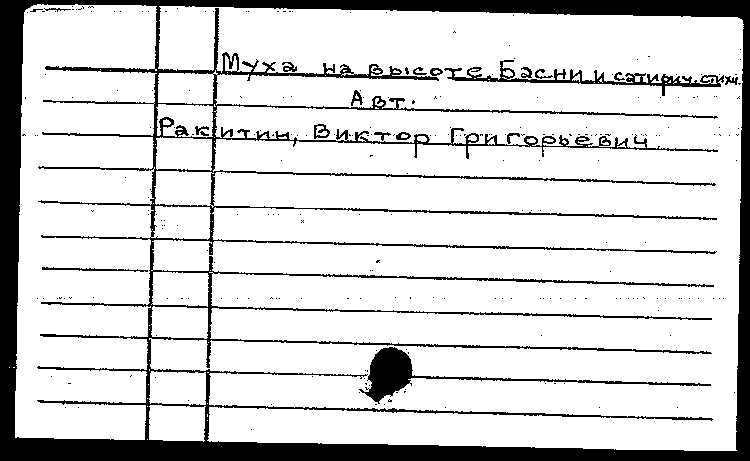 Муха на высоте. Басни и сатирич. стихи.
Авт.
Ракитин, Виктор Григорьевич